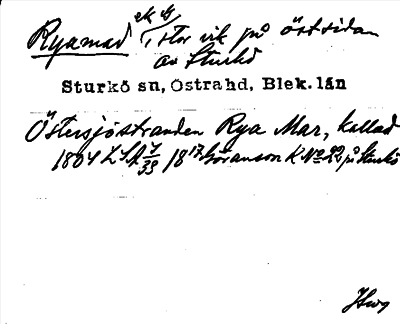 Ryamad ek 4/1 stor vik på östsidan
av Sturkö
Sturkö sn, Östrahd, Blek. län
Östersjöstranden Rya Mar, kallad
1804 LSA 7/33 18 17 Göranson K No 22 på Sturkö